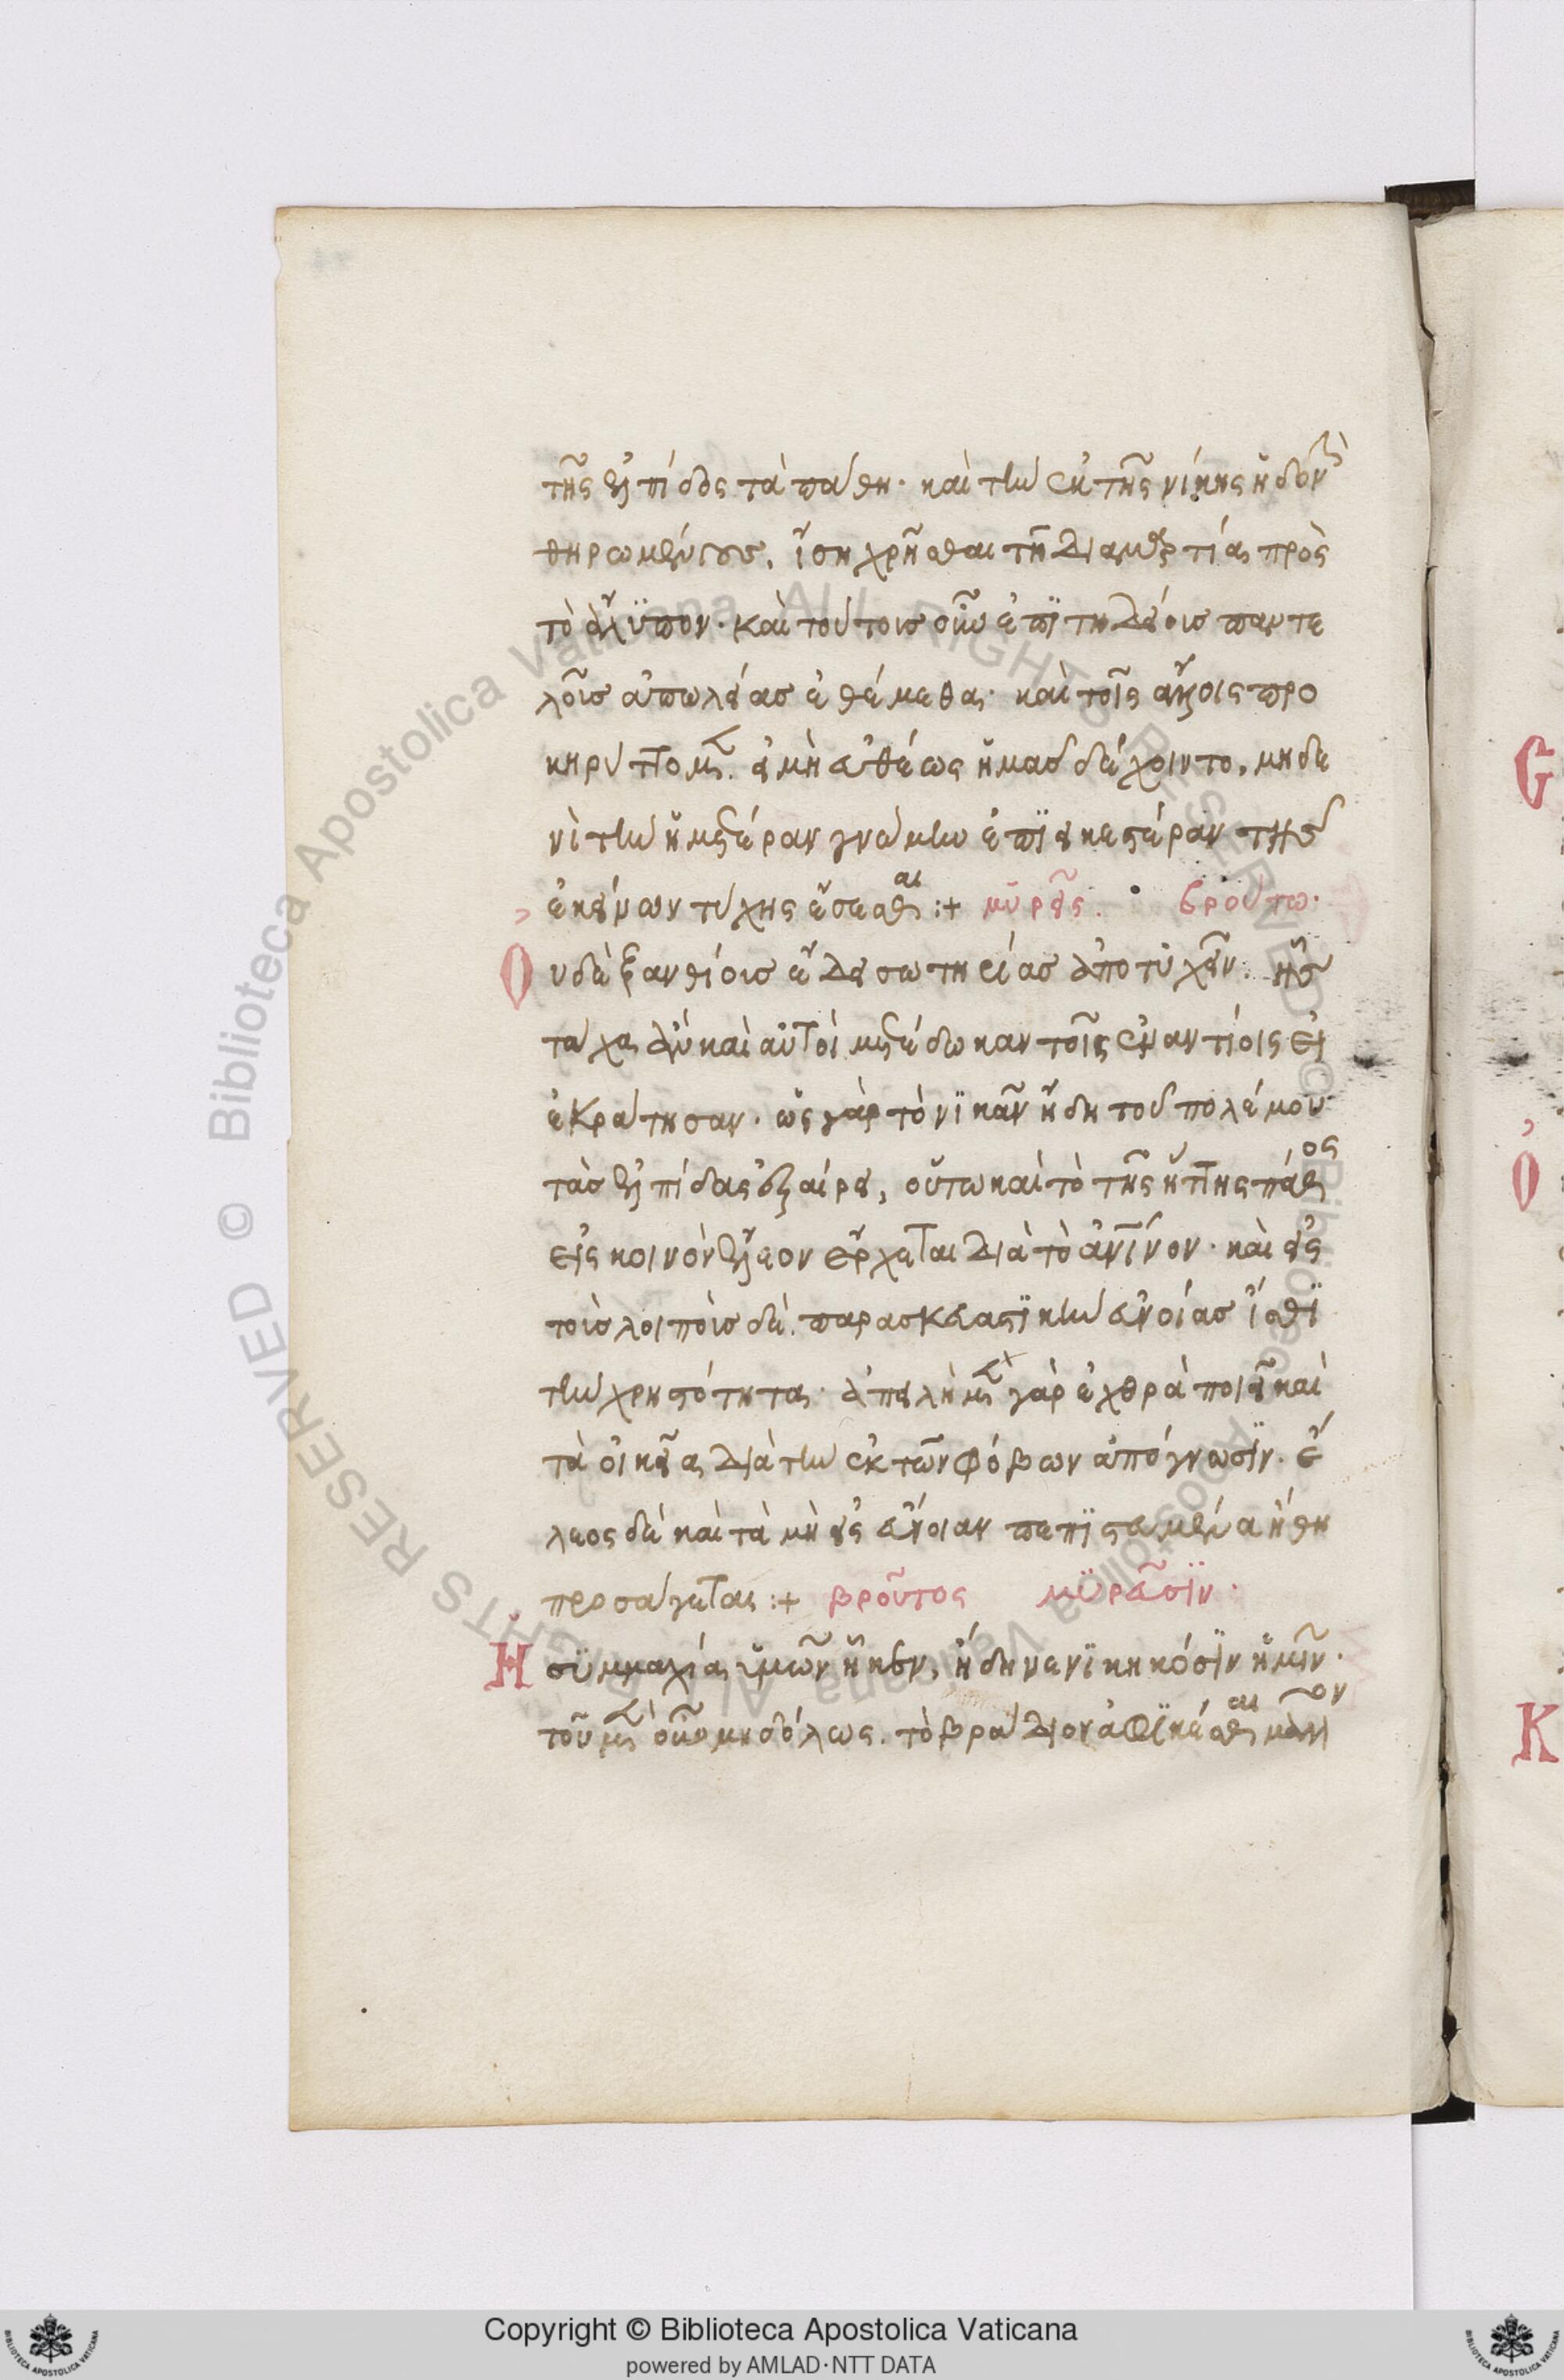 τῆς ἐλπίδος τὰ πάθη· καὶ τὴν ἐκ τῆς νίκης ἡδονὴν
θηρωμένους, ἴση χρῆσθαι τῆ διαμαρτία πρὸς
τὸ ἄλυπον· καὶ τούτοις οὖν ἐπιτηδείοις παντε
λοῦς ἀπωλείας ἐθέμεθα· καὶ τοῖς ἄλλοις προ
κηρύττομεν. εἰ μὴ εὐθέως ἡμᾶς δέχοιντο, μηδε
νὶ τὴν ἡμετέραν γνώμην ἐπιεικεστέραν τῆς
ἐκείνων τύχης ἔσεσθαι :+ μυρεῖς. βρούτω·
Οὐδὲ ξανθίοις ἔδει σωτηρίας ἀποτυχεῖν. ἧς
τάχα ἂν καὶ αὐτοὶ μετέδωκαν τοῖς ἐναντίοις εἰ
ἐκράτησαν· ὡς γὰρ τὸ νικᾶν ἤδη τοῦ πολέμου
τὰς ἐλπίδας ἐξαίρει, οὕτω καὶ τὸ τῆς ἥττης πάθος
εἰς κοινὸν ἔλεον ἔρχεται διὰ τὸ ἀνθρώπινον· καὶ εἰς
τοὺς λοιποὺς δὲ. παρασκευαστικὴν εὐνοίας ἴσθι
τὴν χρηστότητα· ἀπειλὴ μὲν γὰρ ἐχθρὰ ποιεῖ καὶ
τὰ οἰκεῖα διὰ τὴν ἐκ τῶν φόβων ἀπόγνωσιν· ἔ
λεος δὲ καὶ τὰ μὴ εἰς εὔνοιαν πεπιστευμένα ἤθη
προσάγεται :+ βροῦτος μυρεῦσιν·
Ἡ συμμαχία ὑμῶν ἧκεν, ἤδη νενικηκόσιν ἡμῖν·
τοῦ μὲν οὖν μηδόλως. τὸ βράδιον ἀφικέσθαι